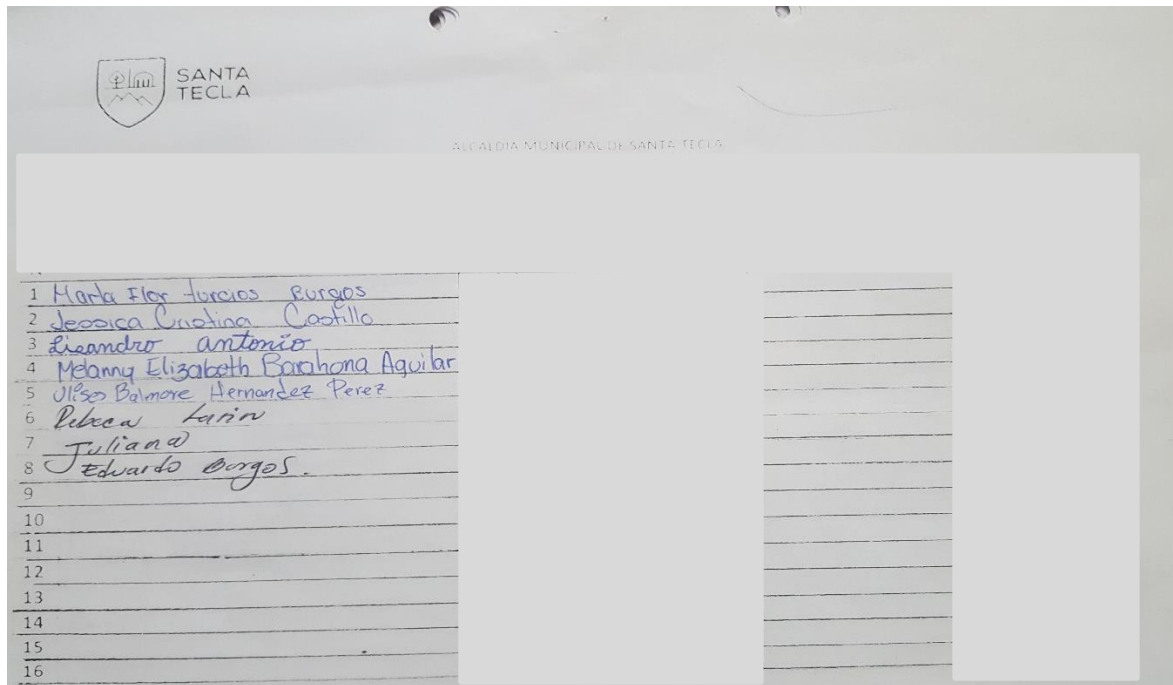 SANTA
TECLA
ALCALDIA MUNICIPAL DE SANTA TECLA
1 Marta Flor turcios Burgos
2 Jessica Cristina Castillo
3 Lisandro antonio
4 Melanny Elizabeth Barahona Aguilar
5 Ulises Balmore Hernandez Perez
6 Rebeca Larin
7 Juliana
8 Eduardo Burgos.
9
10
11
12
13
14
15
16